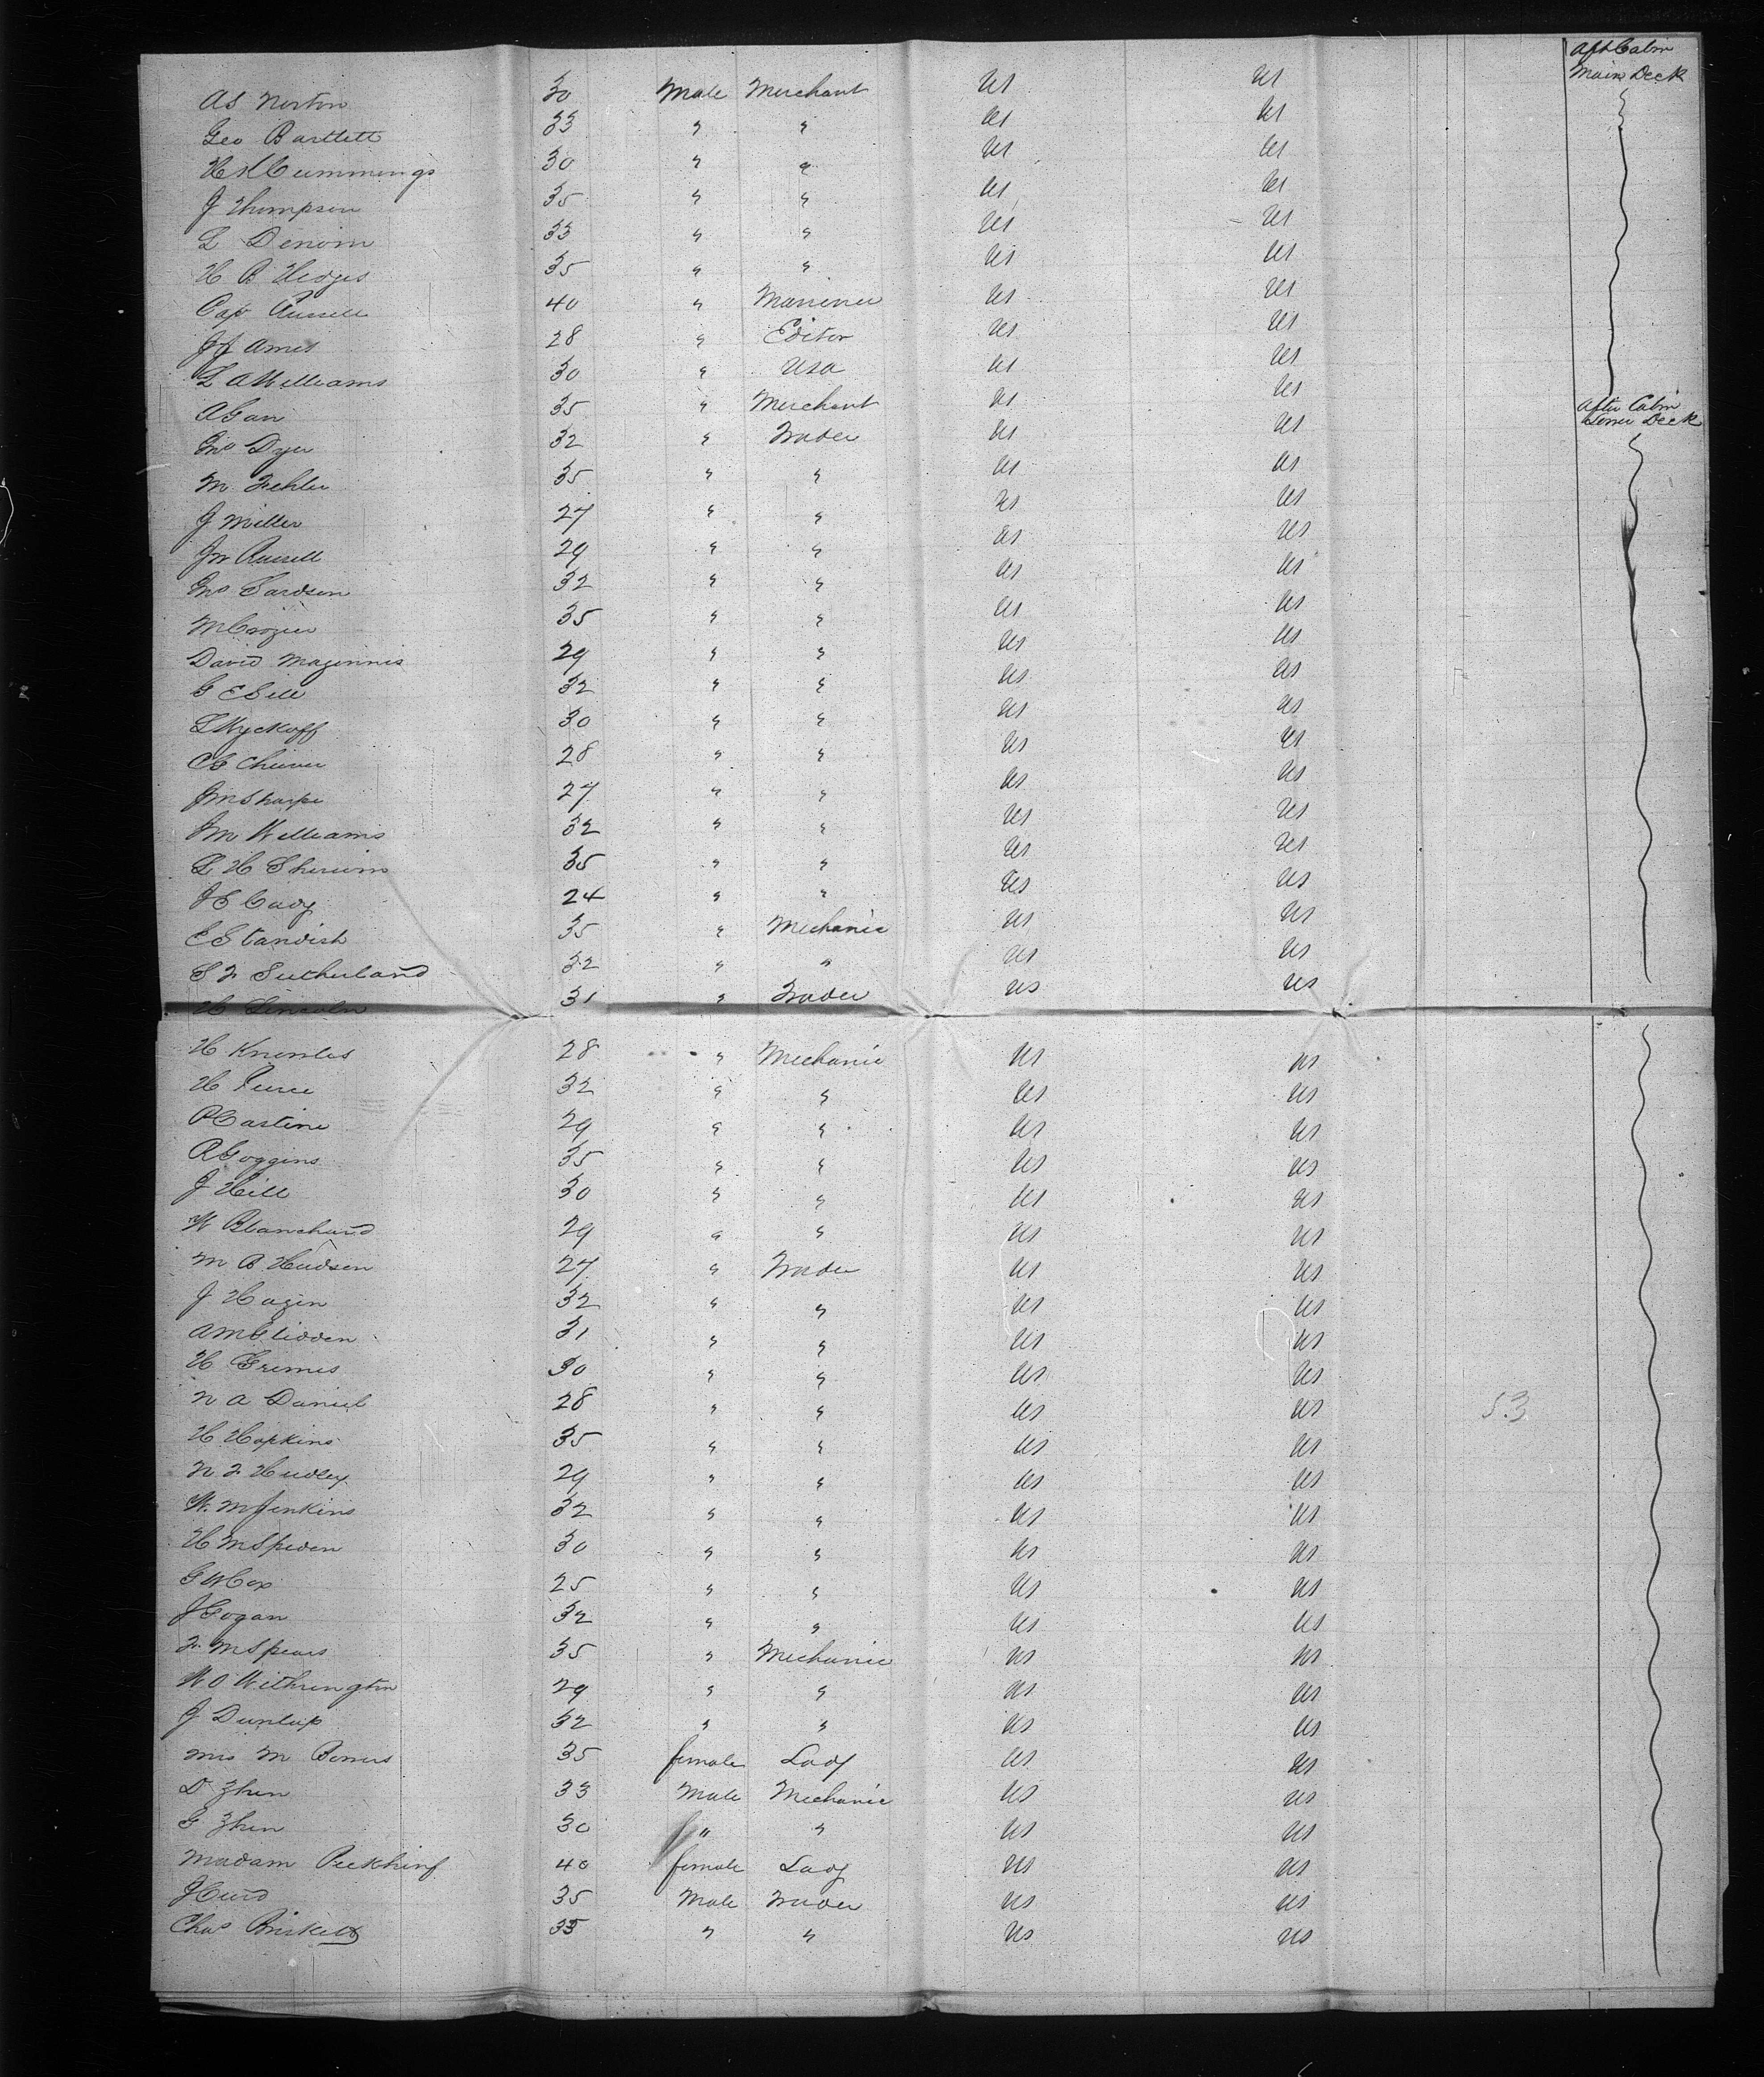 Aft Cabin
Main Deck
AS Norton 30 Male Merchant US US
Geo Bartlett 33 " " US US
H K Cummings 30 " " US US
J Thompson 35 " " US US
L Denom 33 " " US US
H B Hedges 35 " " US US
Cap Russell 40 " Mariner US US
J J Ames 28 " Editor US US
L A Williams 30 " USA US US
A Gan 35 " Merchant US US
After Cabin
Lower Deck
Jno Dyer 32 " Trader US US
M Fehler 35 " " US US
J Miller 27 " " US US
Jn Russell 29 " " US US
Jno Sardsen 32 " " US US
M Crozier 35 " " US US
David Maginnis 29 " " US US
G E Sill 32 " " US US
L Wyckoff 30 " " US US
28 " " US US
J M Sharpe 27 " " US US
J M Williams 32 " " US US
L H Sherwin 35 " " US US
J E Cady 24 " " US US
E Standish 35 " Mechanic US US
S F Sutherland 32 " " US US
H Lincoln 31 " Trader US US
H Knowles 28 " Mechanic US US
H Pierce 32 " " US US
R Castine 29 " " US US
R Goggins 35 " " US US
J Hill 30 " " US US
W Blanchard 29 " " US US
M B Hudson 27 " Trader US US
J Hagin 32 " " US US
A M Glidden 31 " " US US
H Grimes 30 " " US US
N A Daniel 28 " " US US
53
H Hopkins 35 " " US US
N F Hudley 29 " " US US
W. M Jenkins 32 " " US US
H M Speden 30 " " US US
G W Cox 25 " " US US
J Gogan 32 " " US US
F M Spears 35 " Mechanic US US
W O Withrington 29 " " US US
J Dunlap 32 " " US US
Mrs M Bowers 35 female Lady US US
D Zhen 33 Male Mechanic US US
G Zhen 30 " " US US
Madam 40 female Lady US US
J Curd 35 Male Trader US US
Chas Birkett 35 " " US US